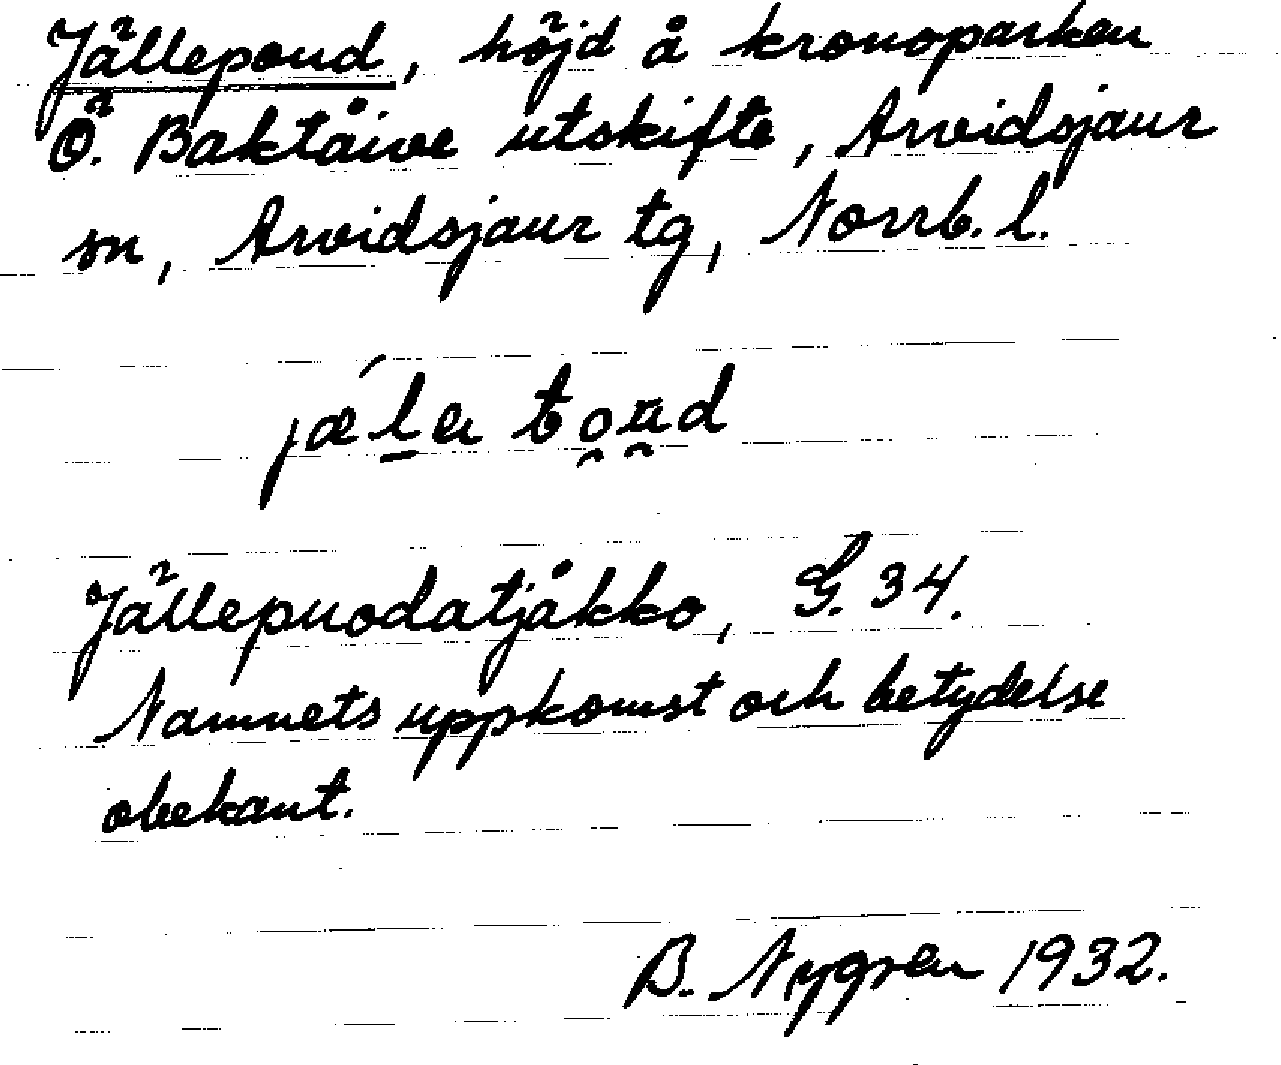 Jällepoud, höjd å kronoparken
Ö. Baktåive utskifte, Arvidsjaur
sn, Arvidsjaur tg, Norrb. l.
Jällepuodatjåkko, G. 34.
Namnets uppkomst och betydelse
obekant.
B. Nygren 1932.